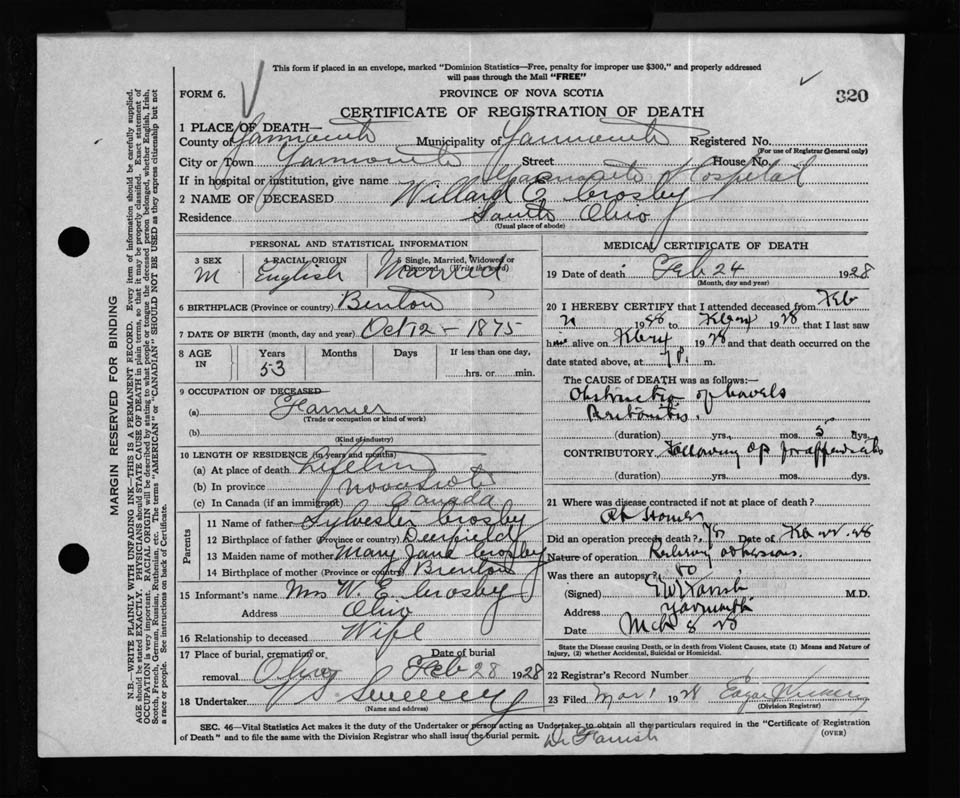 This form if placed in an envelope, marked "Dominion Statistics—Free, penalty for improper use $300," and properly addressed
will pass through the Mail "FREE"
FORM 6.
PROVINCE OF NOVA SCOTIA
320
CERTIFICATE OF REGISTRATION OF DEATH
1 PLACE OF DEATH—
County of Yarmouth Municipality of Yarmouth Registered No.
(For use of Registrar General only)
City or Town Yarmouth Street House No.
If in hospital or institution, give name Yarmouth Hospital
2 NAME OF DECEASED Willard E Crosby
Residence Ohio
(Usual place of abode)
PERSONAL AND STATISTICAL INFORMATION
3 SEX M
4 RACIAL ORIGIN English
5 Single, Married, Widowed or Divorced (Write the word) Married
6 BIRTHPLACE (Province or country)
7 DATE OF BIRTH (month, day and year) Oct 12 - 1875
8 AGE IN Years Months Days If less than one day,
53 hrs. or min.
9 OCCUPATION OF DECEASED—
(a) Farmer
(Trade or occupation or kind of work)
(b)
(Kind of industry)
10 LENGTH OF RESIDENCE (in years and months)
(a) At place of death Lifetime
(b) In province Nova Scotia
(c) In Canada (if an immigrant) Canada
Parents
11 Name of father Sylvester Crosby
12 Birthplace of father (Province or country) Deerfield
13 Maiden name of mother Mary Jane Crosby
14 Birthplace of mother (Province or country)
15 Informant's name Mrs W. E. Crosby
Address Ohio
16 Relationship to deceased Wife
17 Place of burial, cremation or removal Ohio Date of burial Feb 28 1928
18 Undertaker Sweeney
(Name and address)
MEDICAL CERTIFICATE OF DEATH
19 Date of death Feb 24 1928
(Month, day and year)
20 I HEREBY CERTIFY that I attended deceased from Feb
1928 to 1928 that I last saw
h alive on 1928 and that death occurred on the
date stated above, at 7 P. m.
The CAUSE OF DEATH was as follows:—
Obstruction of bowels
Peritonitis.
(duration) yrs. mos. 5 dys.
CONTRIBUTORY Following op for appendicitis
(duration) yrs. mos. dys.
21 Where was disease contracted if not at place of death?
At Home
Did an operation precede death? Yes Date of Feb 28
Nature of operation Relieving adhesions.
Was there an autopsy? no
(Signed) M.D.
Address Yarmouth
Date Mch 8 28
State the Disease causing Death, or in death from Violent Causes, state (1) Means and Nature of
Injury, (2) whether Accidental, Suicidal or Homicidal.
22 Registrar's Record Number
23 Filed Mar 1 1928 Edgar
(Division Registrar)
SEC. 46—Vital Statistics Act makes it the duty of the Undertaker or person acting as Undertaker to obtain all the particulars required in the "Certificate of Registration
of Death" and to file the same with the Division Registrar who shall issue the burial permit.
(OVER)
Dr Farish
MARGIN RESERVED FOR BINDING
N.B.—WRITE PLAINLY WITH UNFADING INK—THIS IS A PERMANENT RECORD. Every item of information should be carefully supplied.
AGE should be stated EXACTLY. PHYSICIANS should STATE CAUSE OF DEATH in plain terms, so that it may be properly classified. Exact statement of
OCCUPATION is very important. RACIAL ORIGIN will be described by stating to what people or tongue the deceased person belonged, whether English, Irish,
Scotch, French, German, Russian, Ruthenian, etc. The terms "AMERICAN" or "CANADIAN" SHOULD NOT BE USED as they express citizenship but not
a race or people. See instructions on back of Certificate.